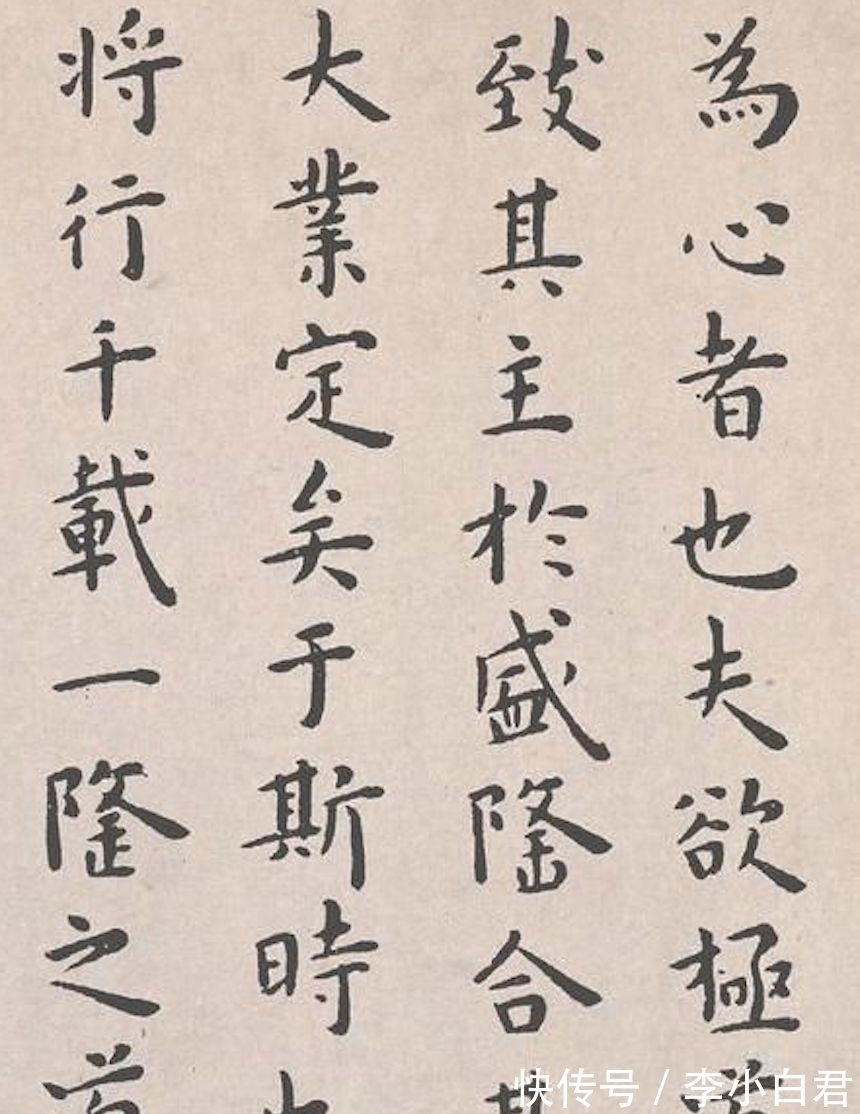 為心者也夫欲極
致其主於盛隆合
大業定矣于斯時
将行千載一隆之
快传号 / 李小白君